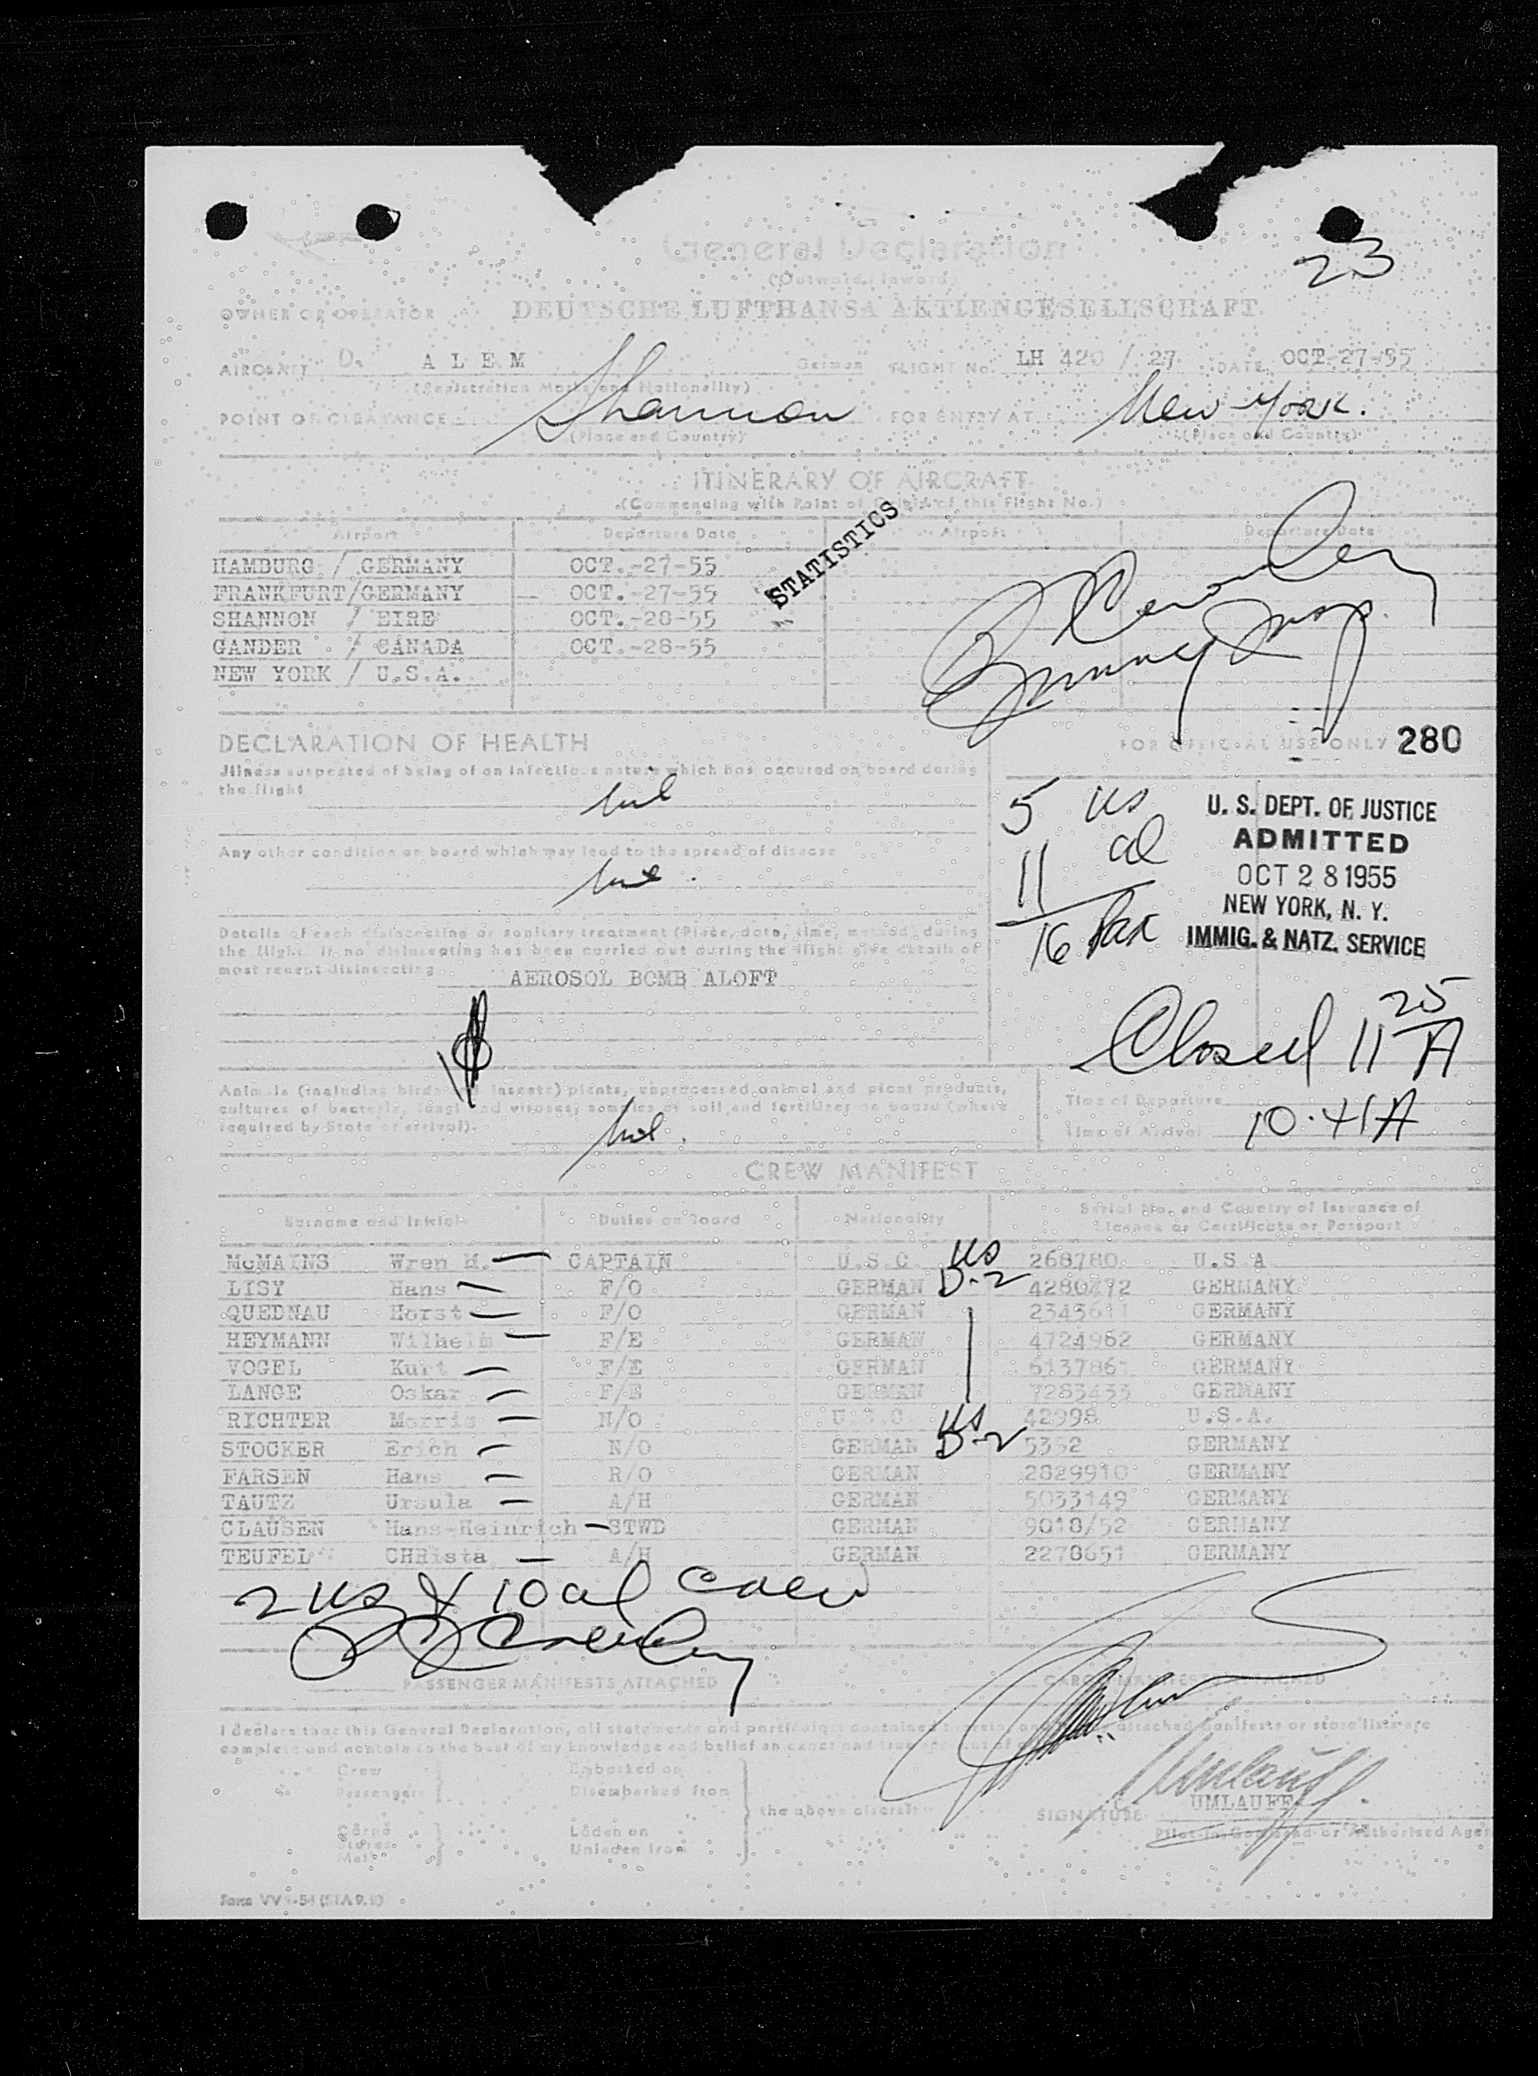 General Declaration
(Outward/Inward)
23
OWNER OR OPERATOR DEUTSCHE LUFTHANSA AKTIENGESELLSCHAFT
AIRCRAFT D. ALEM German FLIGHT No. LH 420 / 27 DATE OCT-27-55
(Registration Marks and Nationality)
POINT OF CLEARANCE Shannon FOR ENTRY AT New York.
(Place and Country) (Place and Country)
ITINERARY OF AIRCRAFT
(Commencing with Point of Origin of this Flight No.)
Airport Departure Date Airport Departure Date
STATISTICS
HAMBURG / GERMANY OCT.-27-55
FRANKFURT/GERMANY OCT.-27-55
SHANNON / EIRE OCT.-28-55
GANDER / CANADA OCT.-28-55
NEW YORK / U.S.A.
DECLARATION OF HEALTH
FOR OFFICIAL USE ONLY 280
Jllness suspected of being of an infectious nature which has occured on board during
the flight nil
Any other condition on board which may lead to the spread of disease
nil.
Details of each disinsecting or sanitary treatment (Place, date, time, method) during
the flight. If no disinsecting has been carried out during the flight give details of
most recent disinsecting
AEROSOL BOMB ALOFT
5 us
11 al
16 Pax
U. S. DEPT. OF JUSTICE
ADMITTED
OCT 28 1955
NEW YORK, N. Y.
IMMIG. & NATZ. SERVICE
Closed 11 25 A
Animals (including birds and insects) plants, unprocessed animal and plant products,
cultures of bacteria, fungi and viruses, samples of soil and fertilizer on board (where
required by State of arrival).
nil.
Time of Departure
Time of Arrival 10.41A
CREW MANIFEST
Surname and Initial Duties on Board Nationality Serial No. and Country of Issuance of
License or Certificate or Passport
McMAINS Wren M. CAPTAIN U.S.C. us 268780 U.S.A
LISY Hans F/O GERMAN D-2 GERMANY
QUEDNAU Horst F/O GERMAN GERMANY
HEYMANN Wilhelm F/E GERMAN 4724962 GERMANY
VOGEL Kurt F/E GERMAN GERMANY
LANGE Oskar F/E GERMAN 7283433 GERMANY
RICHTER Morris N/O U.S.C. us 42998 U.S.A.
STOCKER Erich N/O GERMAN D-2 5352 GERMANY
FARSEN Hans R/O GERMAN 2829910 GERMANY
TAUTZ Ursula A/H GERMAN 5033149 GERMANY
CLAUSEN Hans-Heinrich STWD GERMAN 9018/52 GERMANY
TEUFEL CHRista A/H GERMAN 2278651 GERMANY
2 us & 10 al crew
PASSENGER MANIFESTS ATTACHED CARGO MANIFESTS ATTACHED
I declare that this General Declaration, all statements and particulars contained therein, and attached manifests or stores lists are
complete and contain to the best of my knowledge and belief an exact and true account of
Crew
Passengers
Embarked on
Disembarked from
the above aircraft
Cargo
Stores
Mail
Laden on
Unladen from
SIGNATURE UMLAUFF
Pilot-in-Command or Authorised Agent
Form VV 1-54